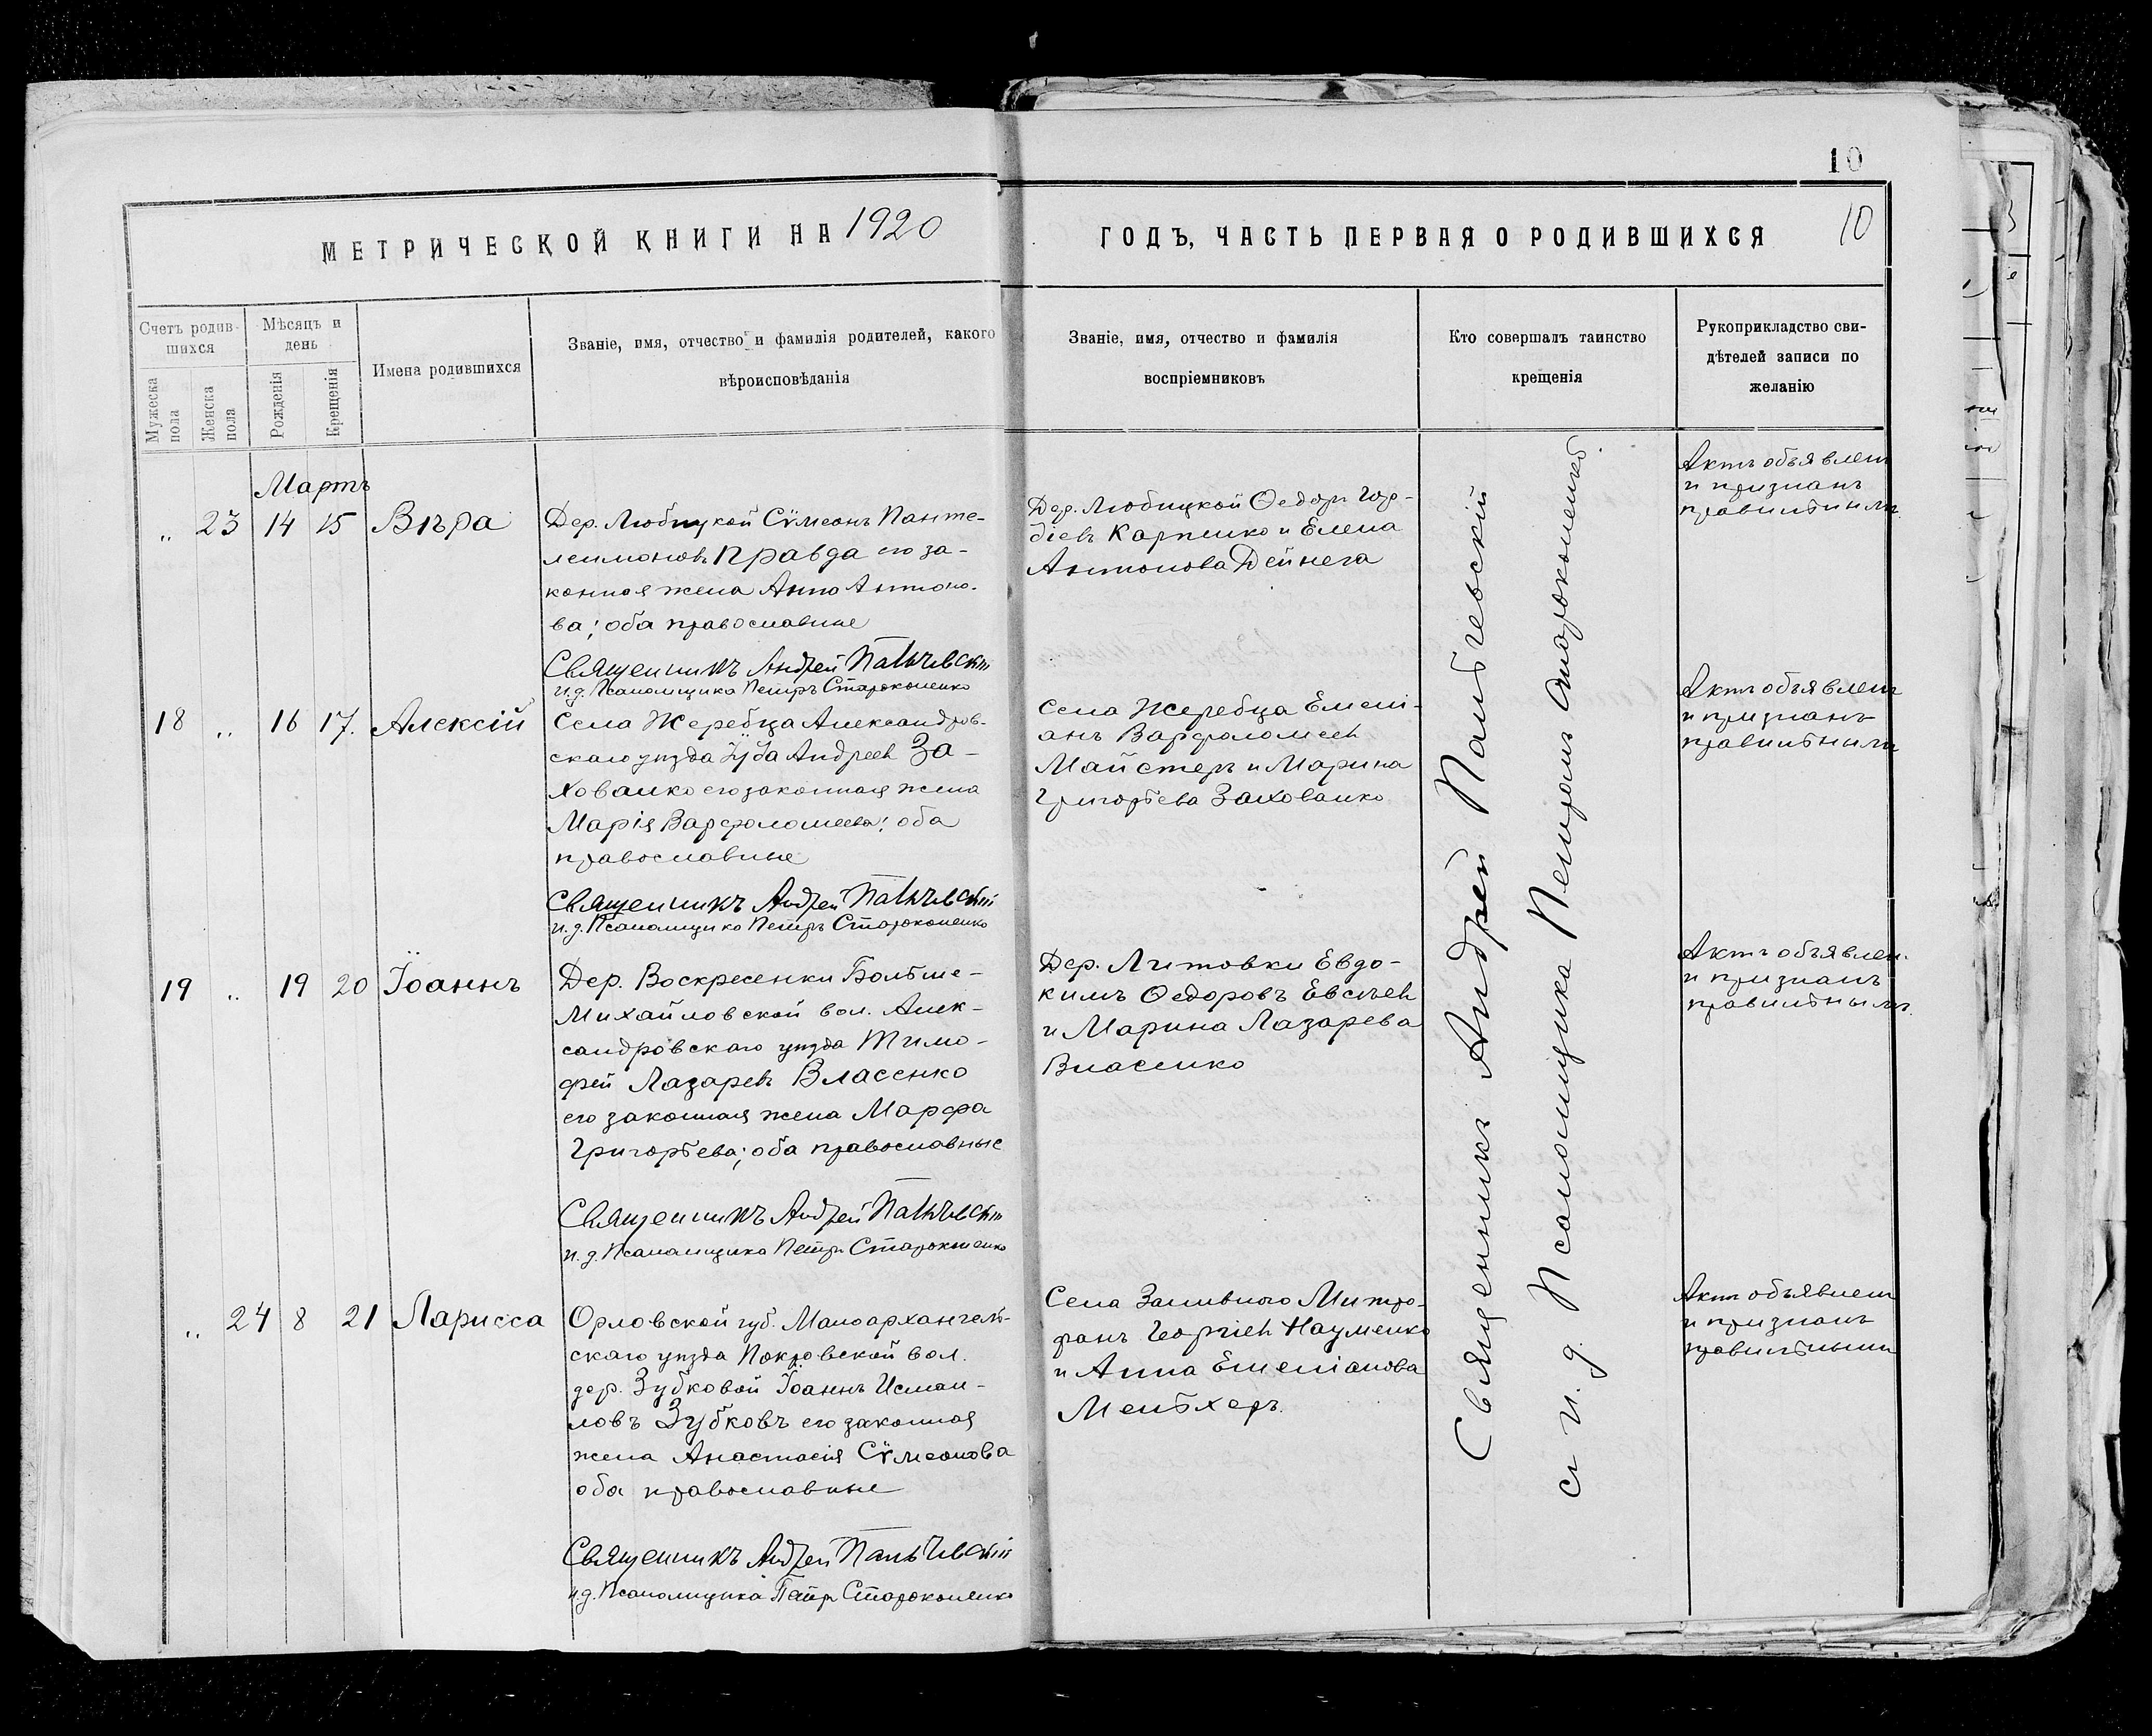 10
МЕТРИЧЕСКОЙ КНИГИ НА 1920
ГОДЪ, ЧАСТЬ ПЕРВАЯ О РОДИВШИХСЯ
10
Счетъ родив-
шихся
Мужеска пола
Женска пола
Мѣсяцъ и
день
Рожденія
Крещенія
Имена родившихся
Званіе, имя, отчество и фамилія родителей, какого
вѣроисповѣданія
Званіе, имя, отчество и фамилія
воспріемниковъ
Кто совершалъ таинство
крещенія
Рукоприкладство сви-
дѣтелей записи по
желанію
Мартъ
„ 23 14 15 Вѣра
Дер. Любицкой Сѵмеонъ Панте-
леимоновъ Правда его за-
конная жена Анна Антоно-
ва; оба православные
Священникъ Андрей Пальчевскій
и.д. Псаломщика Петръ Староконенко
Дер. Любицкой Ѳедоръ Гор-
діевъ Карпенко и Елена
Антонова Дейнега
Актъ объявленъ
и признанъ
правильнымъ
18 „ 16 17. Алексій
Села Жеребца Александров-
скаго уѣзда Іуда Андреевъ За-
хованко его законная жена
Марія Варфоломеева; оба
православные
Священникъ Андрей Пальчевскій
и.д. Псаломщика Петръ Староконенко
Села Жеребца Емелі-
анъ Варфоломеевъ
Майстеръ и Марина
Григорьева Захованко
Актъ объявленъ
и признанъ
правильнымъ
19 „ 19 20 Іоаннъ
Дер. Воскресенки Больше-
Михайловской вол. Алек-
сандровскаго уѣзда Тимо-
фей Лазаревъ Власенко
его законная жена Марфа
Григорьева; оба православные
Священникъ Андрей Пальчевскій
и.д. Псаломщика Петръ Староконенко
Дер. Литовки Евдо-
кимъ Ѳедоровъ Евсѣевъ
и Марина Лазарева
Власенко
Актъ объявлен.
и признанъ
правильнымъ
„ 24 8 21 Ларисса
Орловской губ. Малоархангель-
скаго уѣзда Покровской вол.
дер. Зубковой Іоаннъ Исмаи-
ловъ Зубковъ его законная
жена Анастасія Сѵмеонова
оба православные
Священникъ Андрей Пальчевскій
и.д. Псаломщика Петръ Староконенко
Села Заливного Митро-
фанъ Георгіевъ Науменко
и Анна Емеліанова
Мельхеръ.
Актъ объявленъ
и признанъ
правильнымъ
Священникъ Андрей Пальчевскій
съ и. д. Псаломщика Петромъ Староконенко.